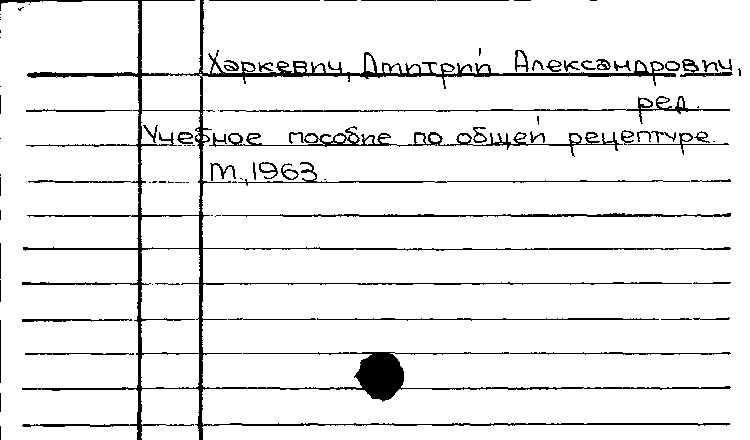 Харкевич, Дмитрий Александрович,
ред.
Учебное пособие по общей рецептуре.
М., 1963.